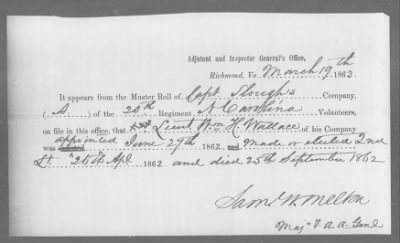 Adjutant and Inspector General's Office,
Richmond, Va. March 19th 1863.
It appears from the Muster Roll of Capt. Slough's Company,
(A) of the 20th Regiment N Carolina Volunteers,
on file in this office, that Lieut Wm H. Wallace of his Company
was appointed June 29th 1862 and made or elected 2nd
Lt 25th Apl 1862 and died 25th September 1862
Saml W. Melton
Maj & A. a Genl